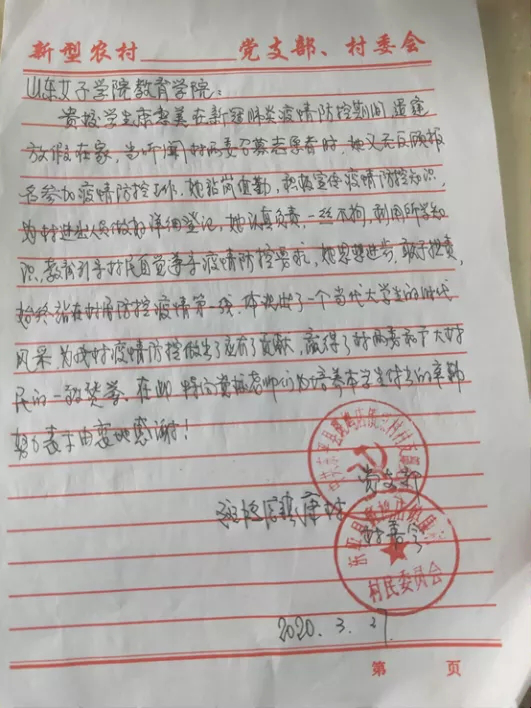 新型农村 党支部、村委会
山东女子学院教育学院：
贵校学生康惠美在新冠肺炎疫情防控期间，适逢
放假在家，当听闻村两委召募志愿者时，她义无反顾报
名参加疫情防控工作，她站岗值勤，积极宣传疫情防控知识，
为村进出人员做好详细登记，她认真负责，一丝不拘，利用所学知
识，教育引导村民自觉遵守疫情防控要求，她思想进步，敢于担责，
始终站在村居防控疫情第一线，体现出了一个当代大学生的时代
风采，为我村疫情防控做出了应有了贡献，赢得了村两委和广大村
民的一致赞誉。在此，特向贵校老师们为培养本学生付出的辛勤
努力表示由衷地感谢！
党支部
班鸠店镇康村
村委会
村民委员会
2020.3.27
第 页